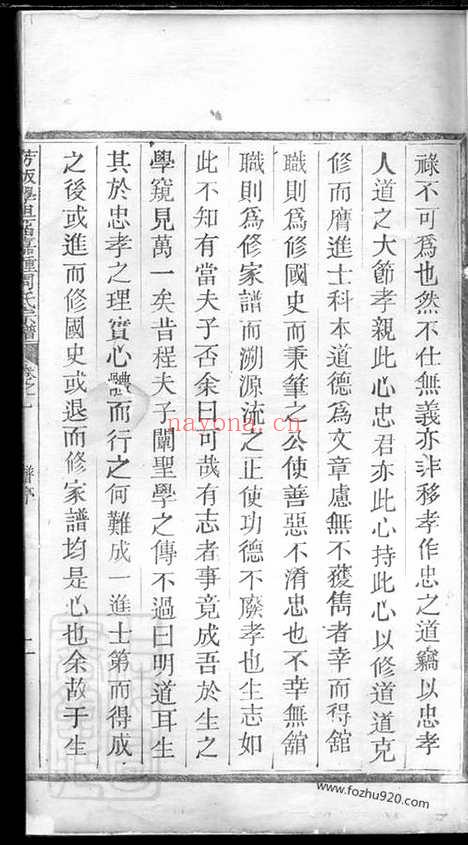 祿不可爲也然不仕無義亦非移孝作忠之道竊以忠孝
人道之大節孝親此心忠君亦此心持此心以修道道克
修而膺進士科本道德爲文章慮無不獲雋者幸而得館
職則爲修國史而秉筆之公使善惡不淆忠也不幸無舘
職則爲修家譜而溯源流之正使功德不廢孝也生志如
此不知有當夫子否余曰可哉有志者事竟成吾於生之
學窺見萬一矣昔程夫子闡聖學之傳不過曰明道耳生
其於忠孝之理實心體而行之何難成一進士第而得成
之後或進而修國史或退而修家譜均是心也余故于生
周氏宗譜
卷之一
譜序
nayona.cn
www.fozhu920.com